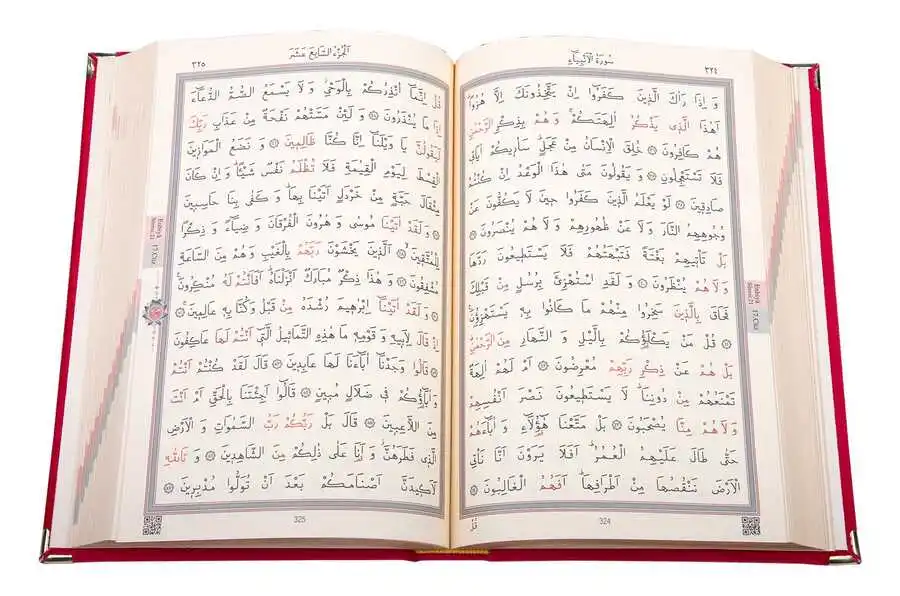 سُورَةُ الْاَنْبِيَاءِ
٣٢٤
وَ اِذَا رَاٰكَ الَّذِينَ كَفَرُٓوا اِنْ يَتَّخِذُونَكَ اِلَّا هُزُوًاۜ
اَهٰذَا الَّذِي يَذْكُرُ اٰلِهَتَكُمْۚ وَ هُمْ بِذِكْرِ الرَّحْمٰنِ
هُمْ كَافِرُونَ ٣٦ خُلِقَ الْاِنْسَانُ مِنْ عَجَلٍۜ سَاُر۪يكُمْ اٰيَات۪ي
فَلَا تَسْتَعْجِلُونِ ٣٧ وَ يَقُولُونَ مَتٰى هٰذَا الْوَعْدُ اِنْ كُنْتُمْ
صَادِق۪ينَ ٣٨ لَوْ يَعْلَمُ الَّذ۪ينَ كَفَرُوا ح۪ينَ لَا يَكُفُّونَ عَنْ
وُجُوهِهِمُ النَّارَ وَ لَا عَنْ ظُهُورِهِمْ وَ لَا هُمْ يُنْصَرُونَ ٣٩
بَلْ تَأْت۪يهِمْ بَغْتَةً فَتَبْهَتُهُمْ فَلَا يَسْتَط۪يعُونَ رَدَّهَا
وَ لَا هُمْ يُنْظَرُونَ ٤٠ وَ لَقَدِ اسْتُهْزِئَ بِرُسُلٍ مِنْ قَبْلِكَ
فَحَاقَ بِالَّذ۪ينَ سَخِرُوا مِنْهُمْ مَا كَانُوا بِه۪ يَسْتَهْزِؤُ۫نَ۟ ٤١
قُلْ مَنْ يَكْلَؤُ۬كُمْ بِالَّيْلِ وَ النَّهَارِ مِنَ الرَّحْمٰنِۜ
بَلْ هُمْ عَنْ ذِكْرِ رَبِّهِمْ مُعْرِضُونَ ٤٢ اَمْ لَهُمْ اٰلِهَةٌ
تَمْنَعُهُمْ مِنْ دُونِنَاۜ لَا يَسْتَط۪يعُونَ نَصْرَ اَنْفُسِهِمْ
وَ لَا هُمْ مِنَّا يُصْحَبُونَ ٤٣ بَلْ مَتَّعْنَا هٰٓؤُ۬لَٓاءِ وَ اٰبَٓاءَهُمْ
حَتّٰى طَالَ عَلَيْهِمُ الْعُمُرُۜ اَفَلَا يَرَوْنَ اَنَّا نَأْتِي
الْاَرْضَ نَنْقُصُهَا مِنْ اَطْرَافِهَاۜ اَفَهُمُ الْغَالِبُونَ ٤٤
قُلْ
324
Enbiyâ Sûresi:21 17.Cüz
اَلْجُزْءُ السَّابِعُ عَشَرَ
٣٢٥
قُلْ اِنَّمَٓا اُنْذِرُكُمْ بِالْوَحْيِۘ وَ لَا يَسْمَعُ الصُّمُّ الدُّعَٓاءَ
اِذَا مَا يُنْذَرُونَ ٤٥ وَ لَئِنْ مَسَّتْهُمْ نَفْحَةٌ مِنْ عَذَابِ رَبِّكَ
لَيَقُولُنَّ يَا وَيْلَنَٓا اِنَّا كُنَّا ظَالِم۪ينَ ٤٦ وَ نَضَعُ الْمَوَاز۪ينَ
الْقِسْطَ لِيَوْمِ الْقِيٰمَةِ فَلَا تُظْلَمُ نَفْسٌ شَيْـًٔاۜ وَ اِنْ كَانَ
مِثْقَالَ حَبَّةٍ مِنْ خَرْدَلٍ اَتَيْنَا بِهَاۜ وَ كَفٰى بِنَا حَاسِب۪ينَ
٤٧ وَ لَقَدْ اٰتَيْنَا مُوسٰى وَ هٰرُونَ الْفُرْقَانَ وَ ضِيَٓاءً وَ ذِكْرًا
لِلْمُتَّق۪ينَۙ ٤٨ اَلَّذ۪ينَ يَخْشَوْنَ رَبَّهُمْ بِالْغَيْبِ وَ هُمْ مِنَ السَّاعَةِ
مُشْفِقُونَ ٤٩ وَ هٰذَا ذِكْرٌ مُبَارَكٌ اَنْزَلْنَاهُۜ اَفَاَنْتُمْ لَهُ مُنْكِرُونَ۟ ٥٠
وَ لَقَدْ اٰتَيْنَٓا اِبْرٰه۪يمَ رُشْدَهُ مِنْ قَبْلُ وَ كُنَّا بِه۪ عَالِم۪ينَۚ ٥١
اِذْ قَالَ لِاَب۪يهِ وَ قَوْمِه۪ مَا هٰذِهِ التَّمَاث۪يلُ الَّت۪ٓي اَنْتُمْ لَهَا عَاكِفُونَ
٥٢ قَالُوا وَجَدْنَٓا اٰبَٓاءَنَا لَهَا عَابِد۪ينَ ٥٣ قَالَ لَقَدْ كُنْتُمْ اَنْتُمْ
وَ اٰبَٓاؤُ۬كُمْ ف۪ي ضَلَالٍ مُب۪ينٍ ٥٤ قَالُٓوا اَجِئْتَنَا بِالْحَقِّ اَمْ اَنْتَ
مِنَ اللَّاعِب۪ينَ ٥٥ قَالَ بَلْ رَبُّكُمْ رَبُّ السَّمٰوَاتِ وَ الْاَرْضِ
الَّذ۪ي فَطَرَهُنَّۘ وَ اَنَا۬ عَلٰى ذٰلِكُمْ مِنَ الشَّاهِد۪ينَ ٥٦ وَ تَاللّٰهِ
لَاَك۪يدَنَّ اَصْنَامَكُمْ بَعْدَ اَنْ تُوَلُّوا مُدْبِر۪ينَ ٥٧
325
Enbiyâ Sûresi:21 17.Cüz